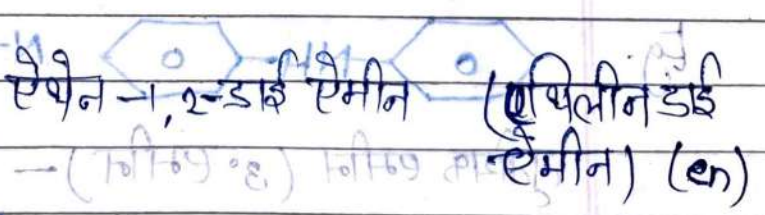 ऐथेन -1,2-डाई ऐमीन (एथिलीन डाई
ऐमीन) (en)